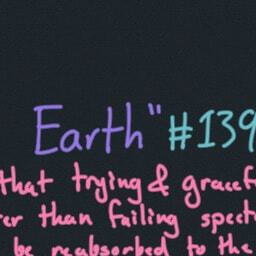 Earth" #139
that trying & gracef
er than failing spect
be reabsorbed to the